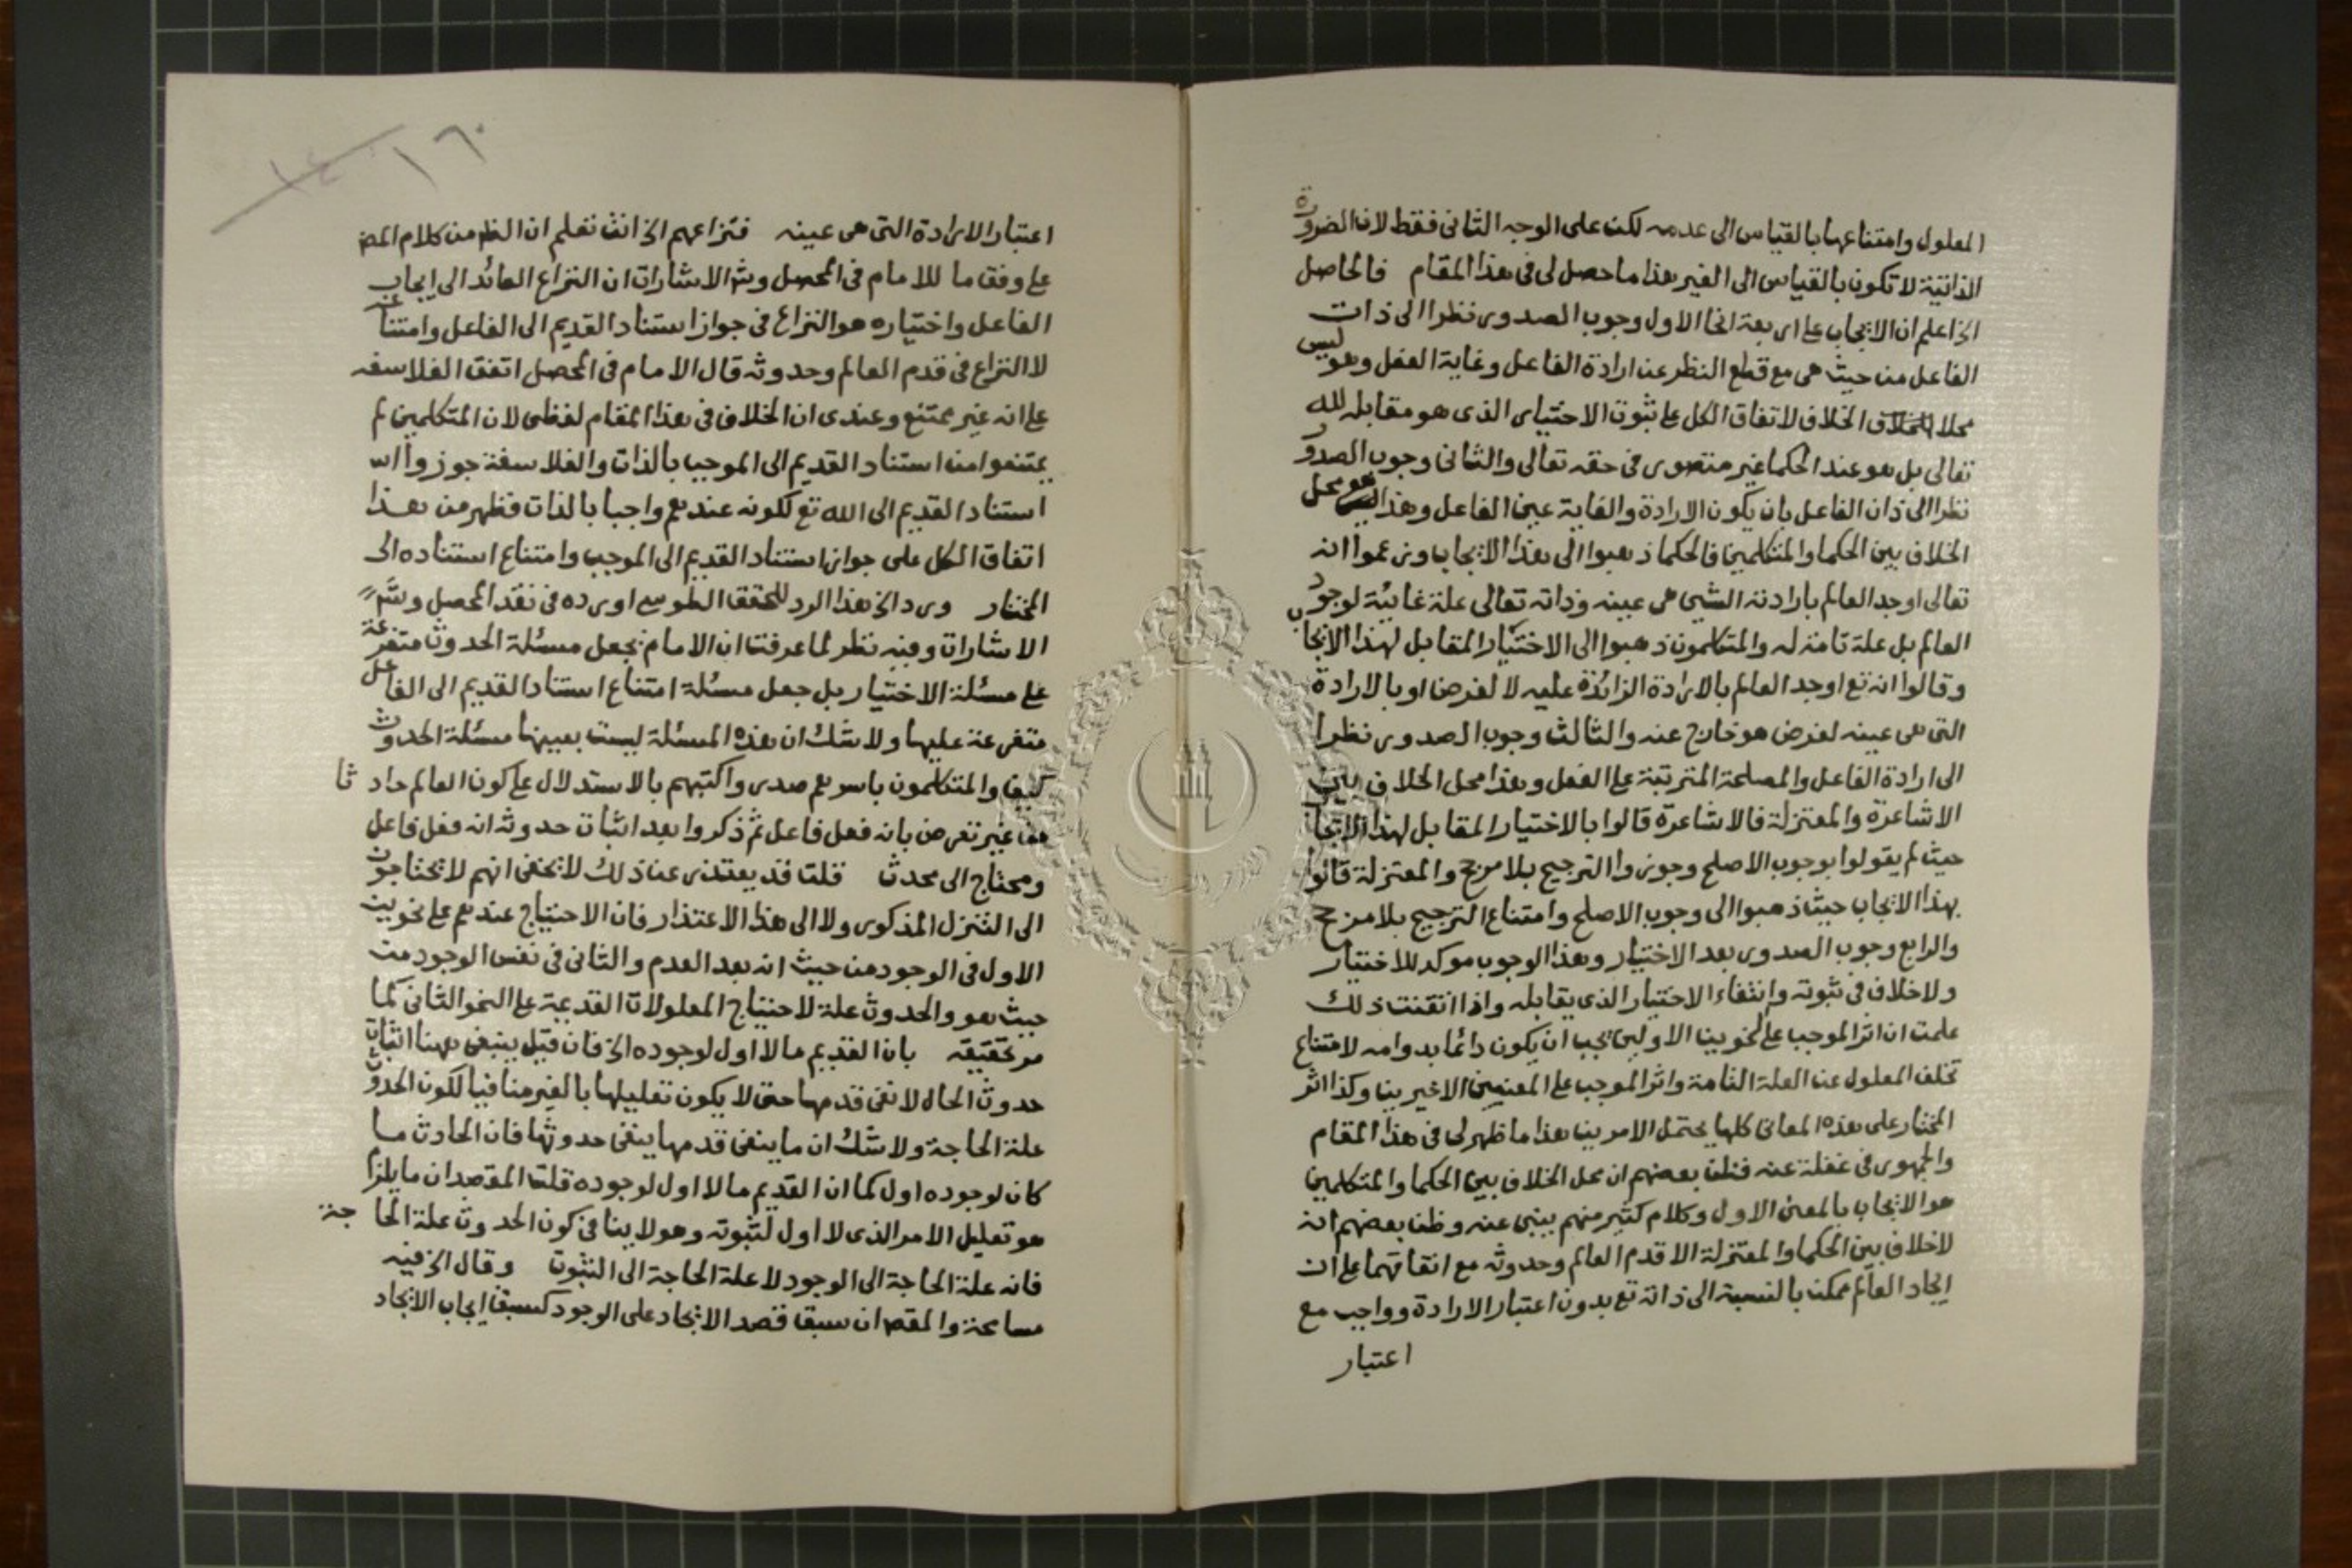 المعلول وامتناعها بالقياس الى عدمه لكن على الوجه الثانى فقط لان الضرورة
الذاتية لا تكون بالقياس الى الغير هذا ما حصل لى فى هذا المقام فالحاصل
الخ اعلم ان الايجاب على اربعة انحا الاول وجوب الصدور نظرا الى ذات
الفاعل من حيث هى مع قطع النظر عن ارادة الفاعل وغاية الفعل وهو ليس
محلا الخلاف لاتفاق الكل على ثبوت الاختيار الذى هو مقابله لله
تعالى بل هو عند الحكما غير متصور فى حقه تعالى والثانى وجوب الصدور
نظرا الى ذات الفاعل بان يكون الارادة والغاية عين الفاعل وهذا هو محل
الخلاف بين الحكما والمتكلمين فالحكما ذهبوا الى هذا الايجاب وزعموا انه
تعالى اوجد العالم بارادته التى هى عينه وذاته تعالى علة غائية لوجود
العالم بل علة تامة له والمتكلمون ذهبوا الى الاختيار المقابل لهذا الايجاب
وقالوا انه تع اوجد العالم بالارادة الزائدة عليه لا لغرض او بالارادة
التى هى عينه لغرض هو خارج عنه والثالث وجوب الصدور نظرا
الى ارادة الفاعل والمصلحة المترتبة على الفعل وهذا محل الخلاف بين
الاشاعرة والمعتزلة فالاشاعرة قالوا بالاختيار المقابل لهذا الايجاب
حيث لم يقولوا بوجوب الاصلح وجوزوا الترجيح بلا مرجح والمعتزلة قالوا
بهذا الايجاب حيث ذهبوا الى وجوب الاصلح وامتناع الترجيح بلا مرجح
والرابع وجوب الصدور بعد الاختيار وهذا الوجوب موكد للاختيار
ولا خلاف فى ثبوته وانتفاء الاختيار الذى يقابله واذا اتقنت ذلك
علمت ان اثر الموجب على النحوين الاولين يجب ان يكون دائما بدوامه لامتناع
تخلف المعلول عن العلة التامة واثر الموجب على المعنيين الاخيرين وكذا اثر
المختار على هذه المعانى كلها يحتمل الامرين هذا ما ظهر لى فى هذا المقام
والجمهور فى غفلة عنه فظن بعضهم ان محل الخلاف بين الحكما والمتكلمين
هو الايجاب بالمعنى الاول وكلام كثير منهم يبنى عنه وظن بعضهم انه
لا خلاف بين الحكما والمعتزلة الا قدم العالم وحدوثه مع اتفاقهما على ان
ايجاد العالم ممكن بالنسبة الى ذاته تع بدون اعتبار الارادة وواجب مع
اعتبار
١٦٠
١٤
اعتبار الارادة التى هى عينه فنزاعهم الخ انت تعلم ان الظ من كلام المص
على وفق ما للامام فى المحصل وش الاشارات ان النزاع العائد الى ايجاب
الفاعل واختياره هو النزاع فى جواز استناد القديم الى الفاعل وامتناعه
لا النزاع فى قدم العالم وحدوثه قال الامام فى المحصل اتفق الفلاسفه
على انه غير ممتنع وعندى ان الخلاف فى هذا المقام لفظى لان المتكلمين لم
يمتنعوا من استناد القديم الى الموجب بالذات والفلاسفة جوزوا اس
استناد القديم الى الله تع لكونه عندهم واجبا بالذات فظهر من هذا
اتفاق الكل على جواز استناد القديم الى الموجب وامتناع استناده الى
المختار ورد الخ هذا الرد للمحقق الطوسى اورده فى نقد المحصل وش
الاشارات وفيه نظر لما عرفت ان الامام يجعل مسئلة الحدوث متفرعة
على مسئلة الاختيار بل جعل مسئلة امتناع استناد القديم الى الفاعل
متفرعة عليها ولا شك ان هذه المسئلة ليست بعينها مسئلة الحدوث
كيف والمتكلمون باسرهم صدروا كتبهم بالاستدلال على كون العالم حادثا
من غير تعرض بانه فعل فاعل ثم ذكروا بعد اثبات حدوثه انه فعل فاعل
ومحتاج الى محدث قلت قد يعتذر عن ذلك لا يخفى انهم لا يحتاجون
الى التنزل المذكور ولا الى هذا الاعتذار فان الاحتياج عندهم على نحوين
الاول فى الوجود من حيث انه بعد العدم والثانى فى نفس الوجود من
حيث هو والحدوث علة لاحتياج المعلولات القديمة على النحو الثانى كما
مر تحقيقه بان القديم ما لا اول لوجوده الخ فان قيل ينبغى ههنا اثبات
حدوث الحال لا نفى قدمها حتى لا يكون تعليلها بالغير منافيا لكون الحدوث
علة الحاجة ولا شك ان ما ينفى قدمها ينفى حدوثها فان الحادث ما
كان لوجوده اول كما ان القديم ما لا اول لوجوده قلت المقصد ان ما يلزم
هو تعليل الامر الذى لا اول لثبوته وهو لا ينافى كون الحدوث علة الحاجة
فانه علة الحاجة الى الوجود لا علة الحاجة الى الثبوت وقال الخ فيه
مسامحة والمقص ان سبق قصد الايجاد على الوجود كسبق ايجاب الايجاد